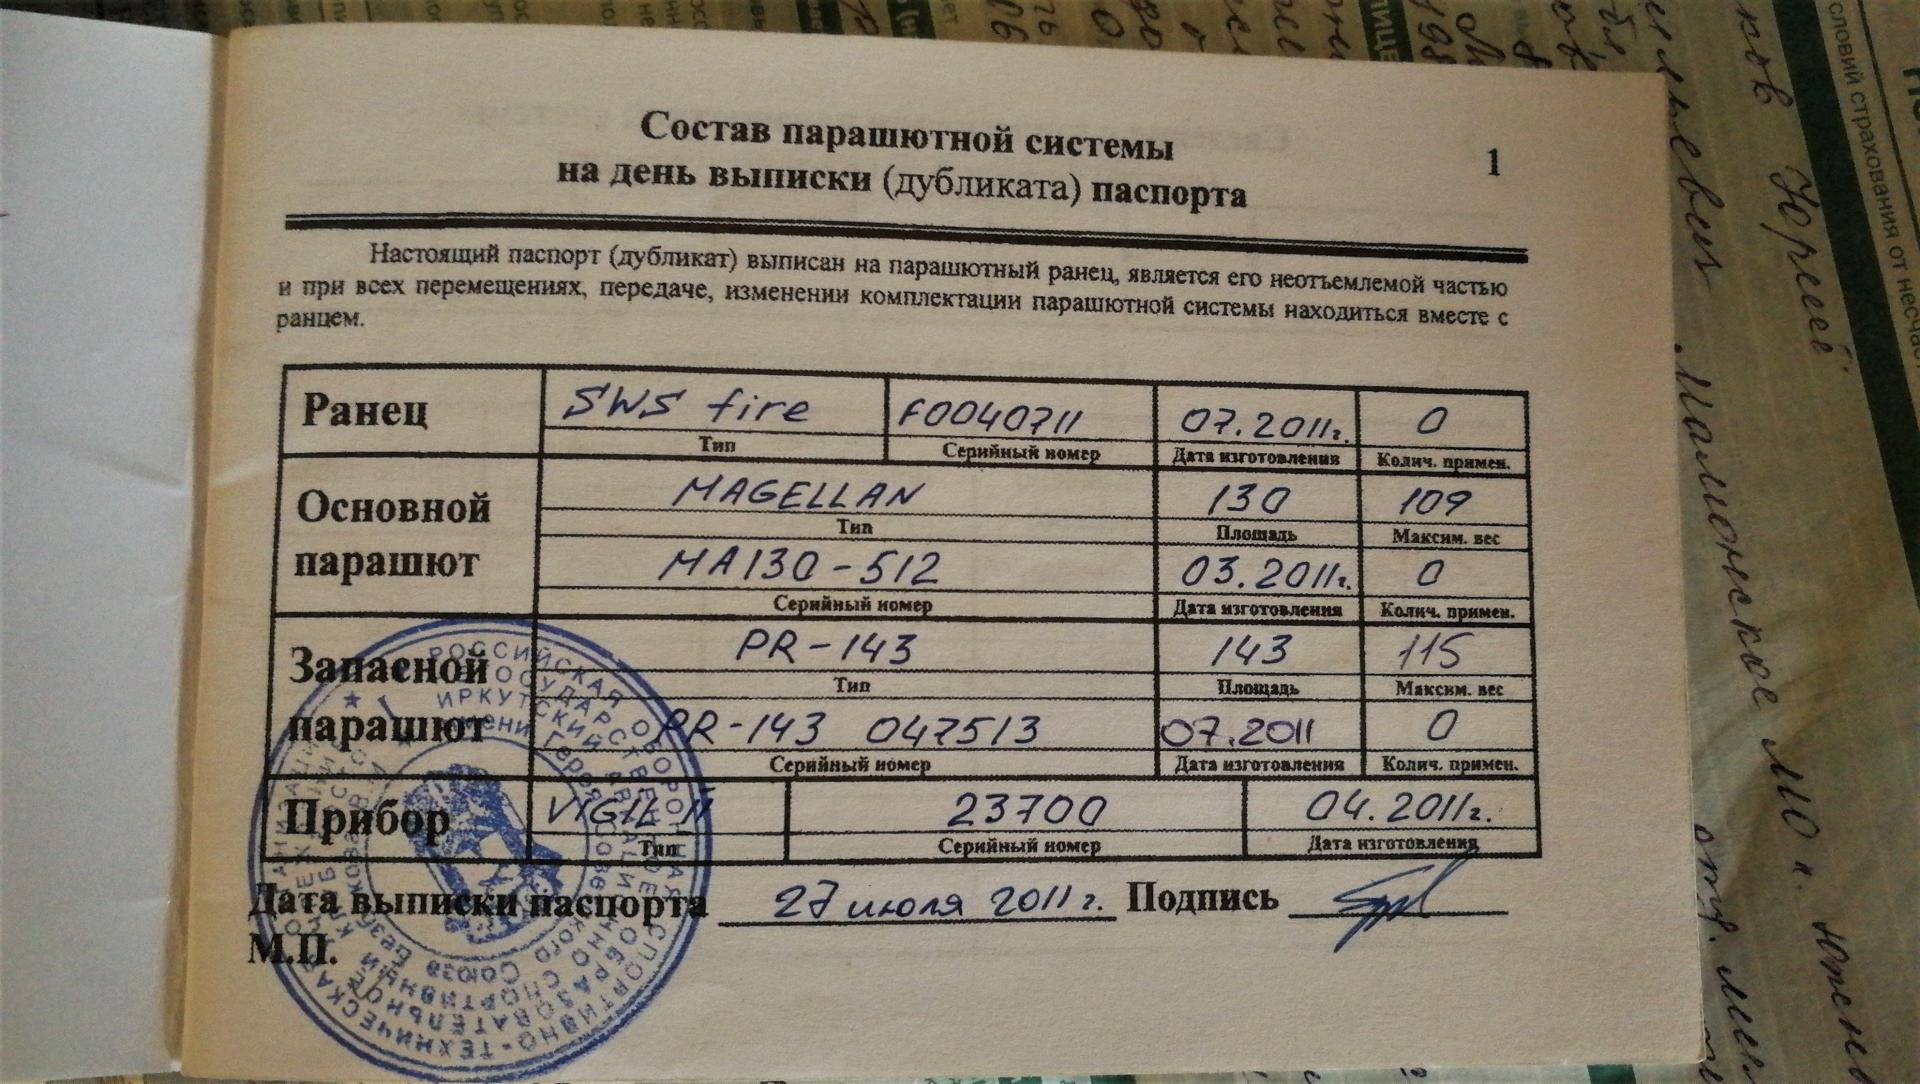 Состав парашютной системы
на день выписки (дубликата) паспорта
1
Настоящий паспорт (дубликат) выписан на парашютный ранец, является его неотъемлемой частью
и при всех перемещениях, передаче, изменении комплектации парашютной системы находиться вместе с
ранцем.
Ранец SWS fire F0040711 07.2011г. 0
Тип Серийный номер Дата изготовления Колич. примен.
Основной парашют MAGELLAN 130 109
Тип Площадь Максим. вес
MA130-512 03.2011г. 0
Серийный номер Дата изготовления Колич. примен.
Запасной парашют PR-143 143 115
Тип Площадь Максим. вес
PR-143 047513 07.2011 0
Серийный номер Дата изготовления Колич. примен.
Прибор VIGIL II 23700 04.2011г.
Тип Серийный номер Дата изготовления
Дата выписки паспорта 27 июля 2011г. Подпись
М.П.
РОССИЙСКАЯ ОБОРОННАЯ СПОРТИВНО-ТЕХНИЧЕСКАЯ
ИРКУТСКИЙ
имени Героя
Союза
словий страхования от несчас
Юрьев